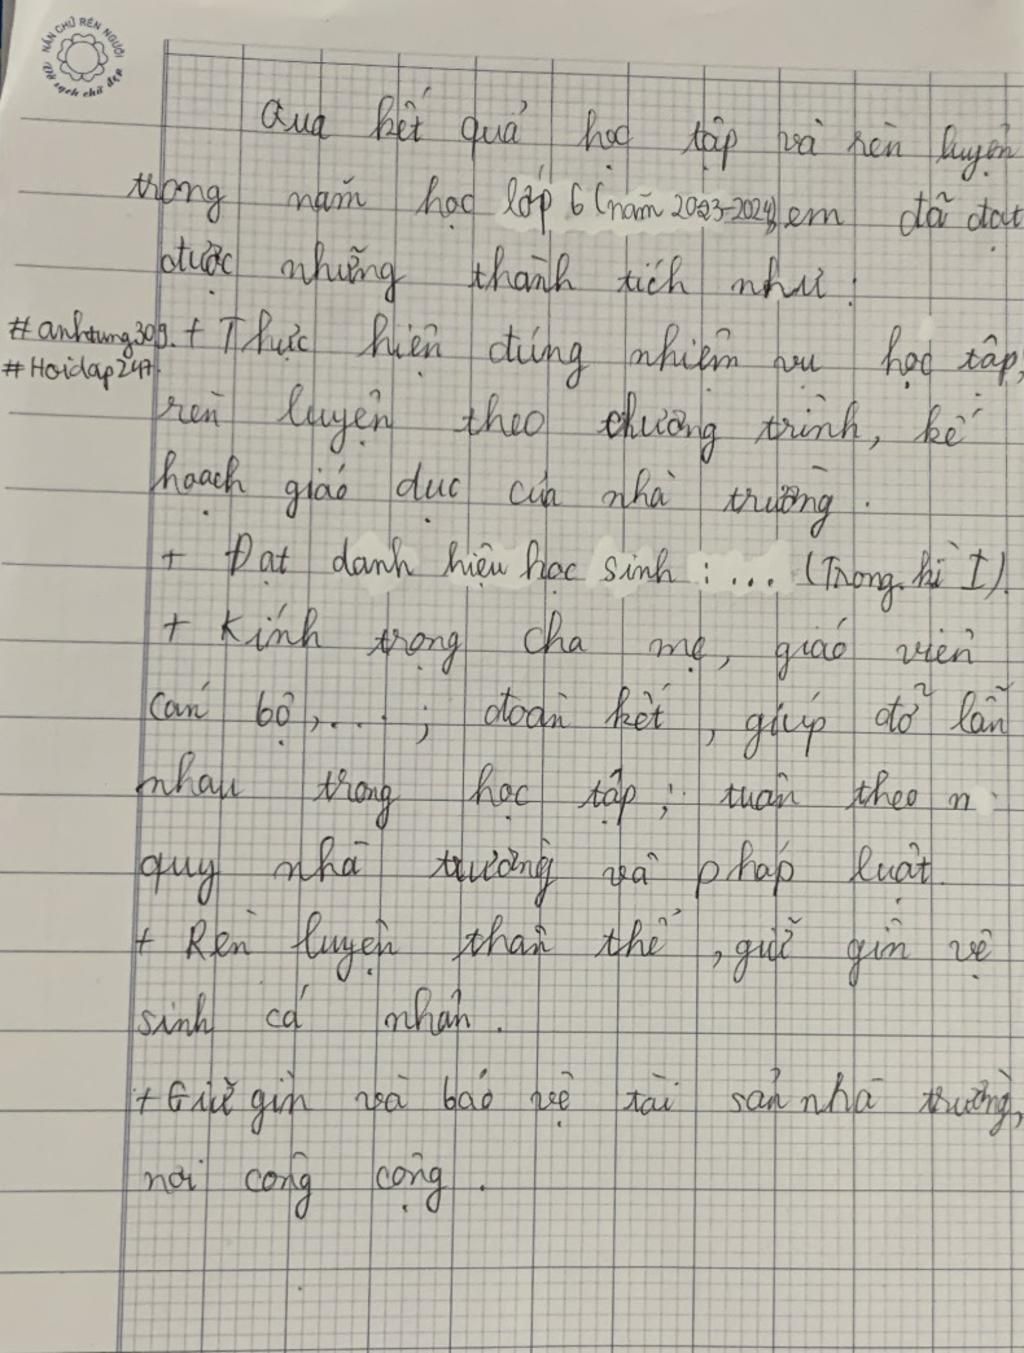 NẮN CHỮ RÈN NGƯỜI
Vở sạch chữ đẹp
Qua kết quả học tập và rèn luyện
trong năm học lớp 6 (năm 2023-2024) em đã đạt
được những thành tích như:
#anhtung309. + Thực hiện đúng nhiệm vụ học tập,
#Hoidap247.
rèn luyện theo chương trình, kế
hoạch giáo dục của nhà trường.
+ Đạt danh hiệu học sinh : ... (Trong kì I)
+ Kính trọng cha mẹ, giáo viên
cán bộ, ... ; đoàn kết, giúp đở lẫn
nhau trong học tập; tuân theo n
quy nhà trường và pháp luật.
+ Rèn luyện thân thể, giữ gìn vệ
sinh cá nhân.
+ Giữ gìn và bảo vệ tài sản nhà trường,
nơi công cộng.